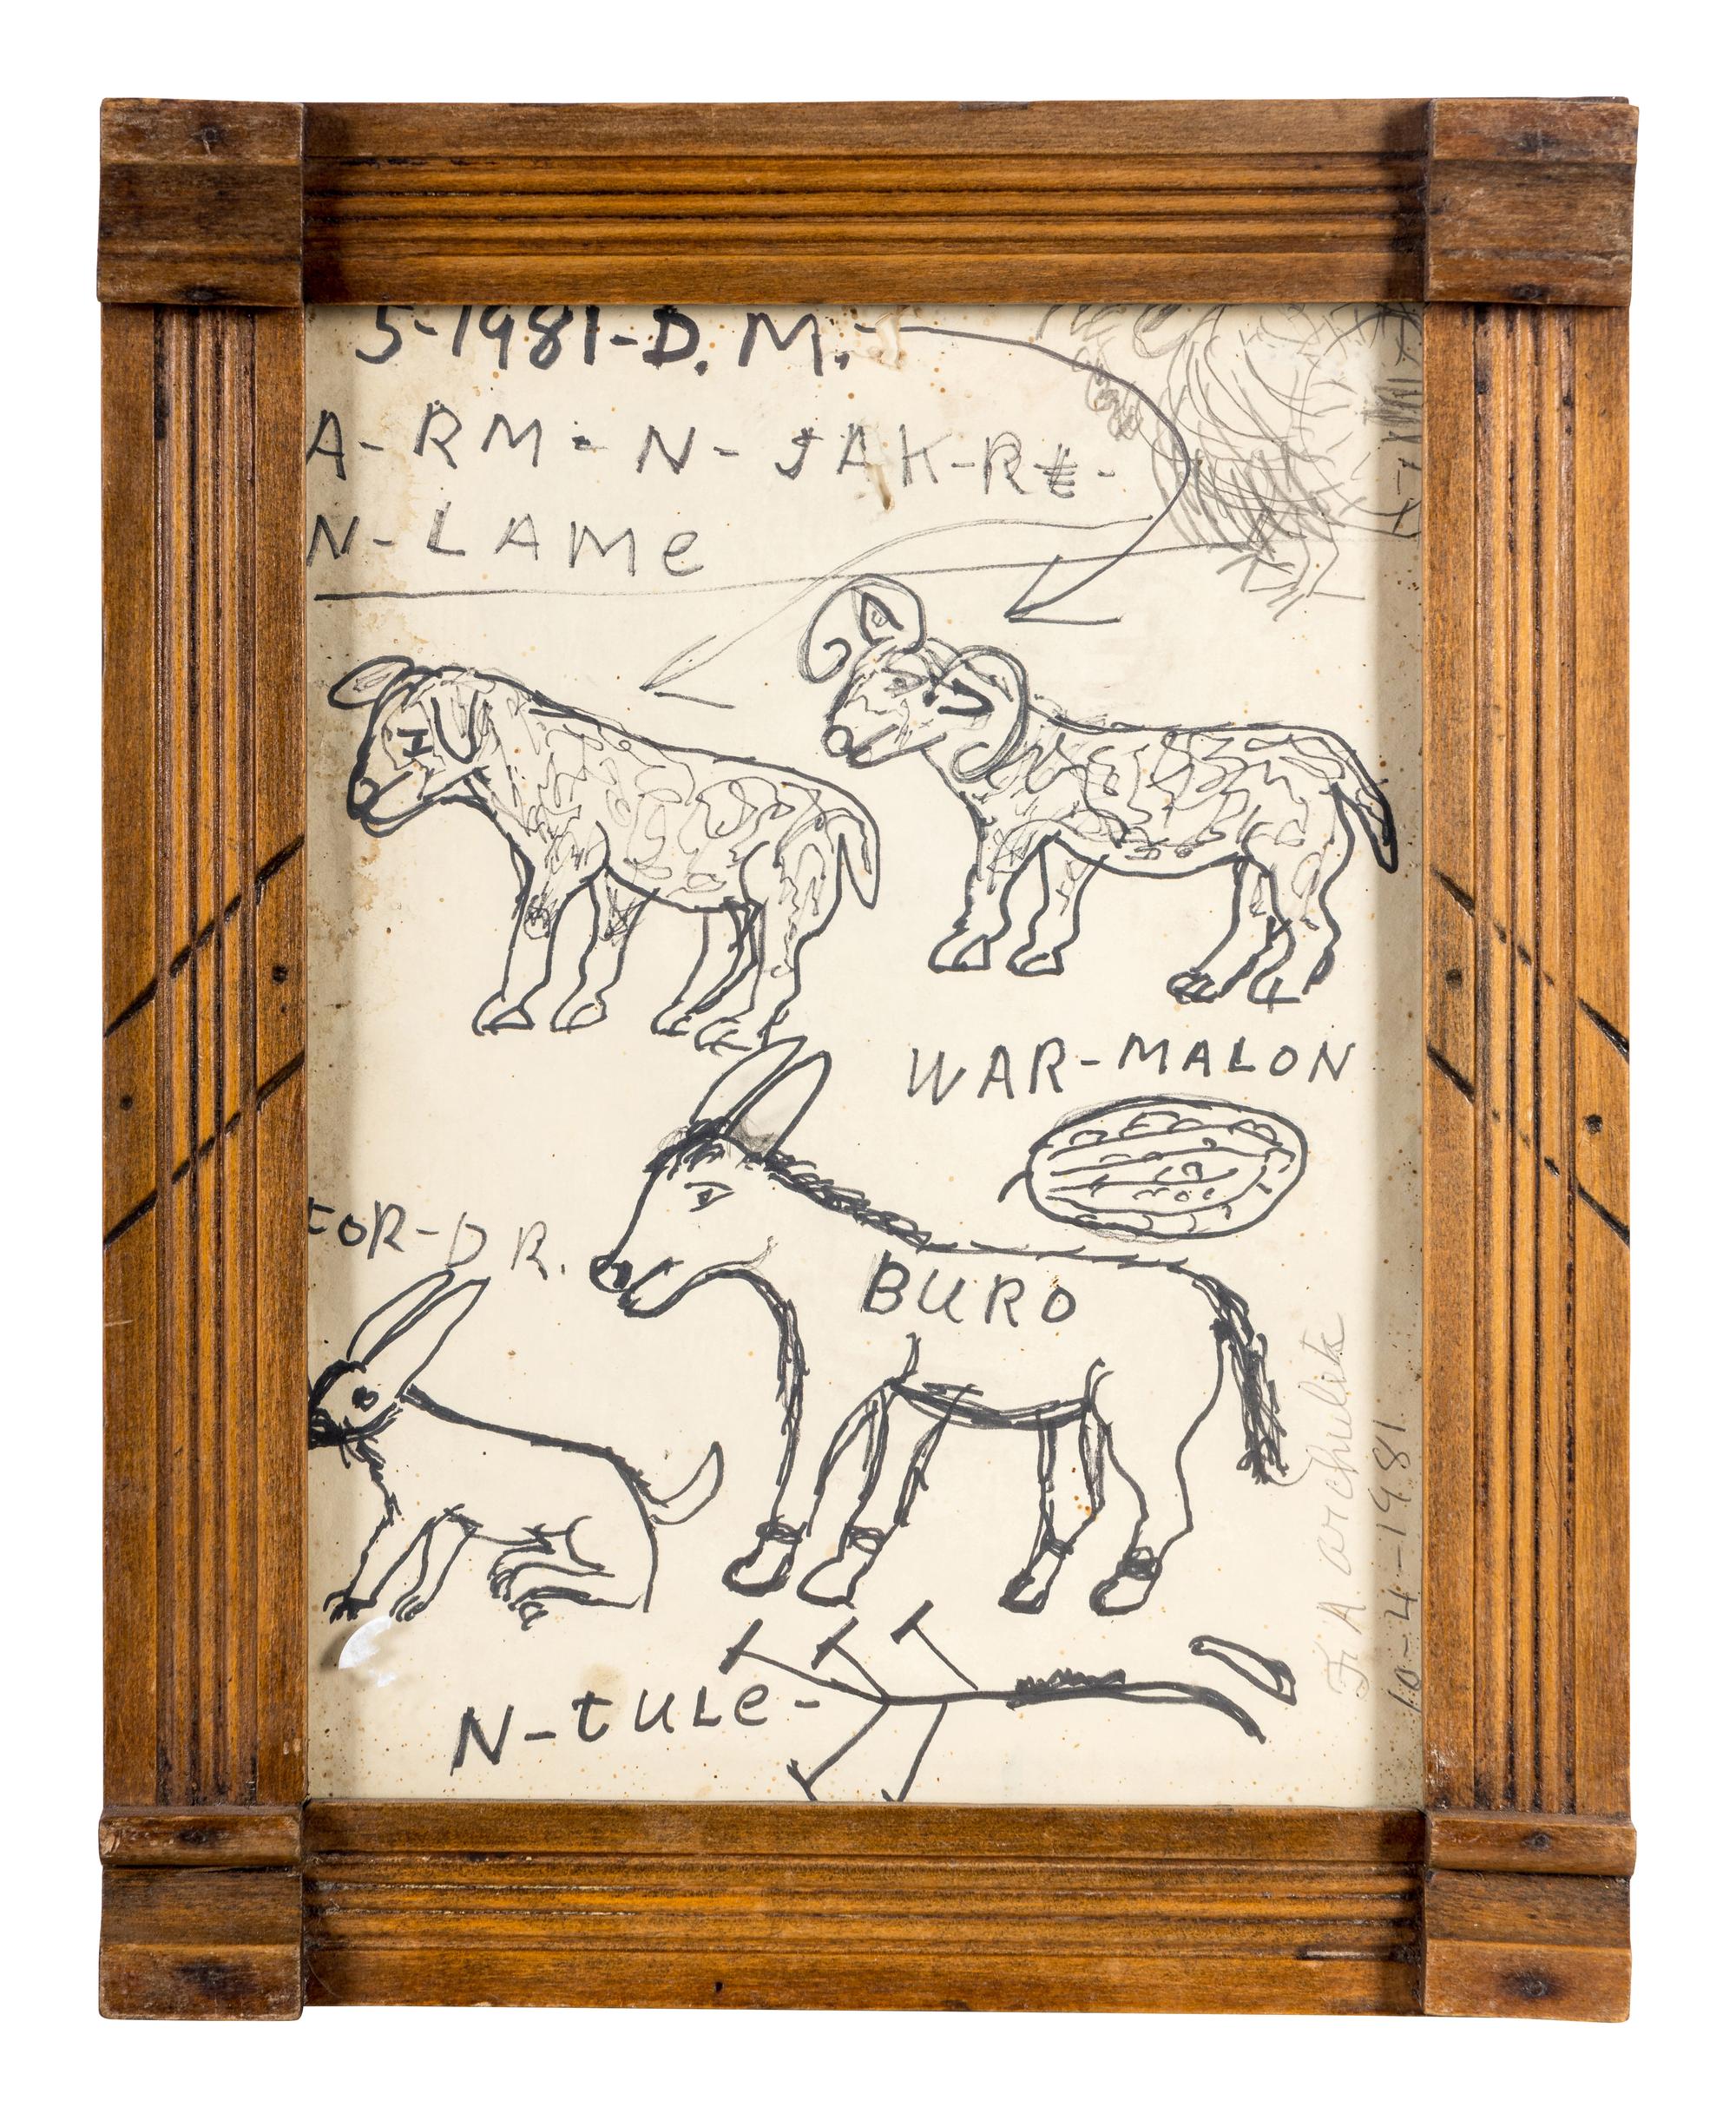 5-1981-D.M.-
A-RM-N-JAK-RE-
N-LAMe
WAR-MALON
tOR-DR.
BURO
N-tULe-
F. A. archulitk
10-4-1981